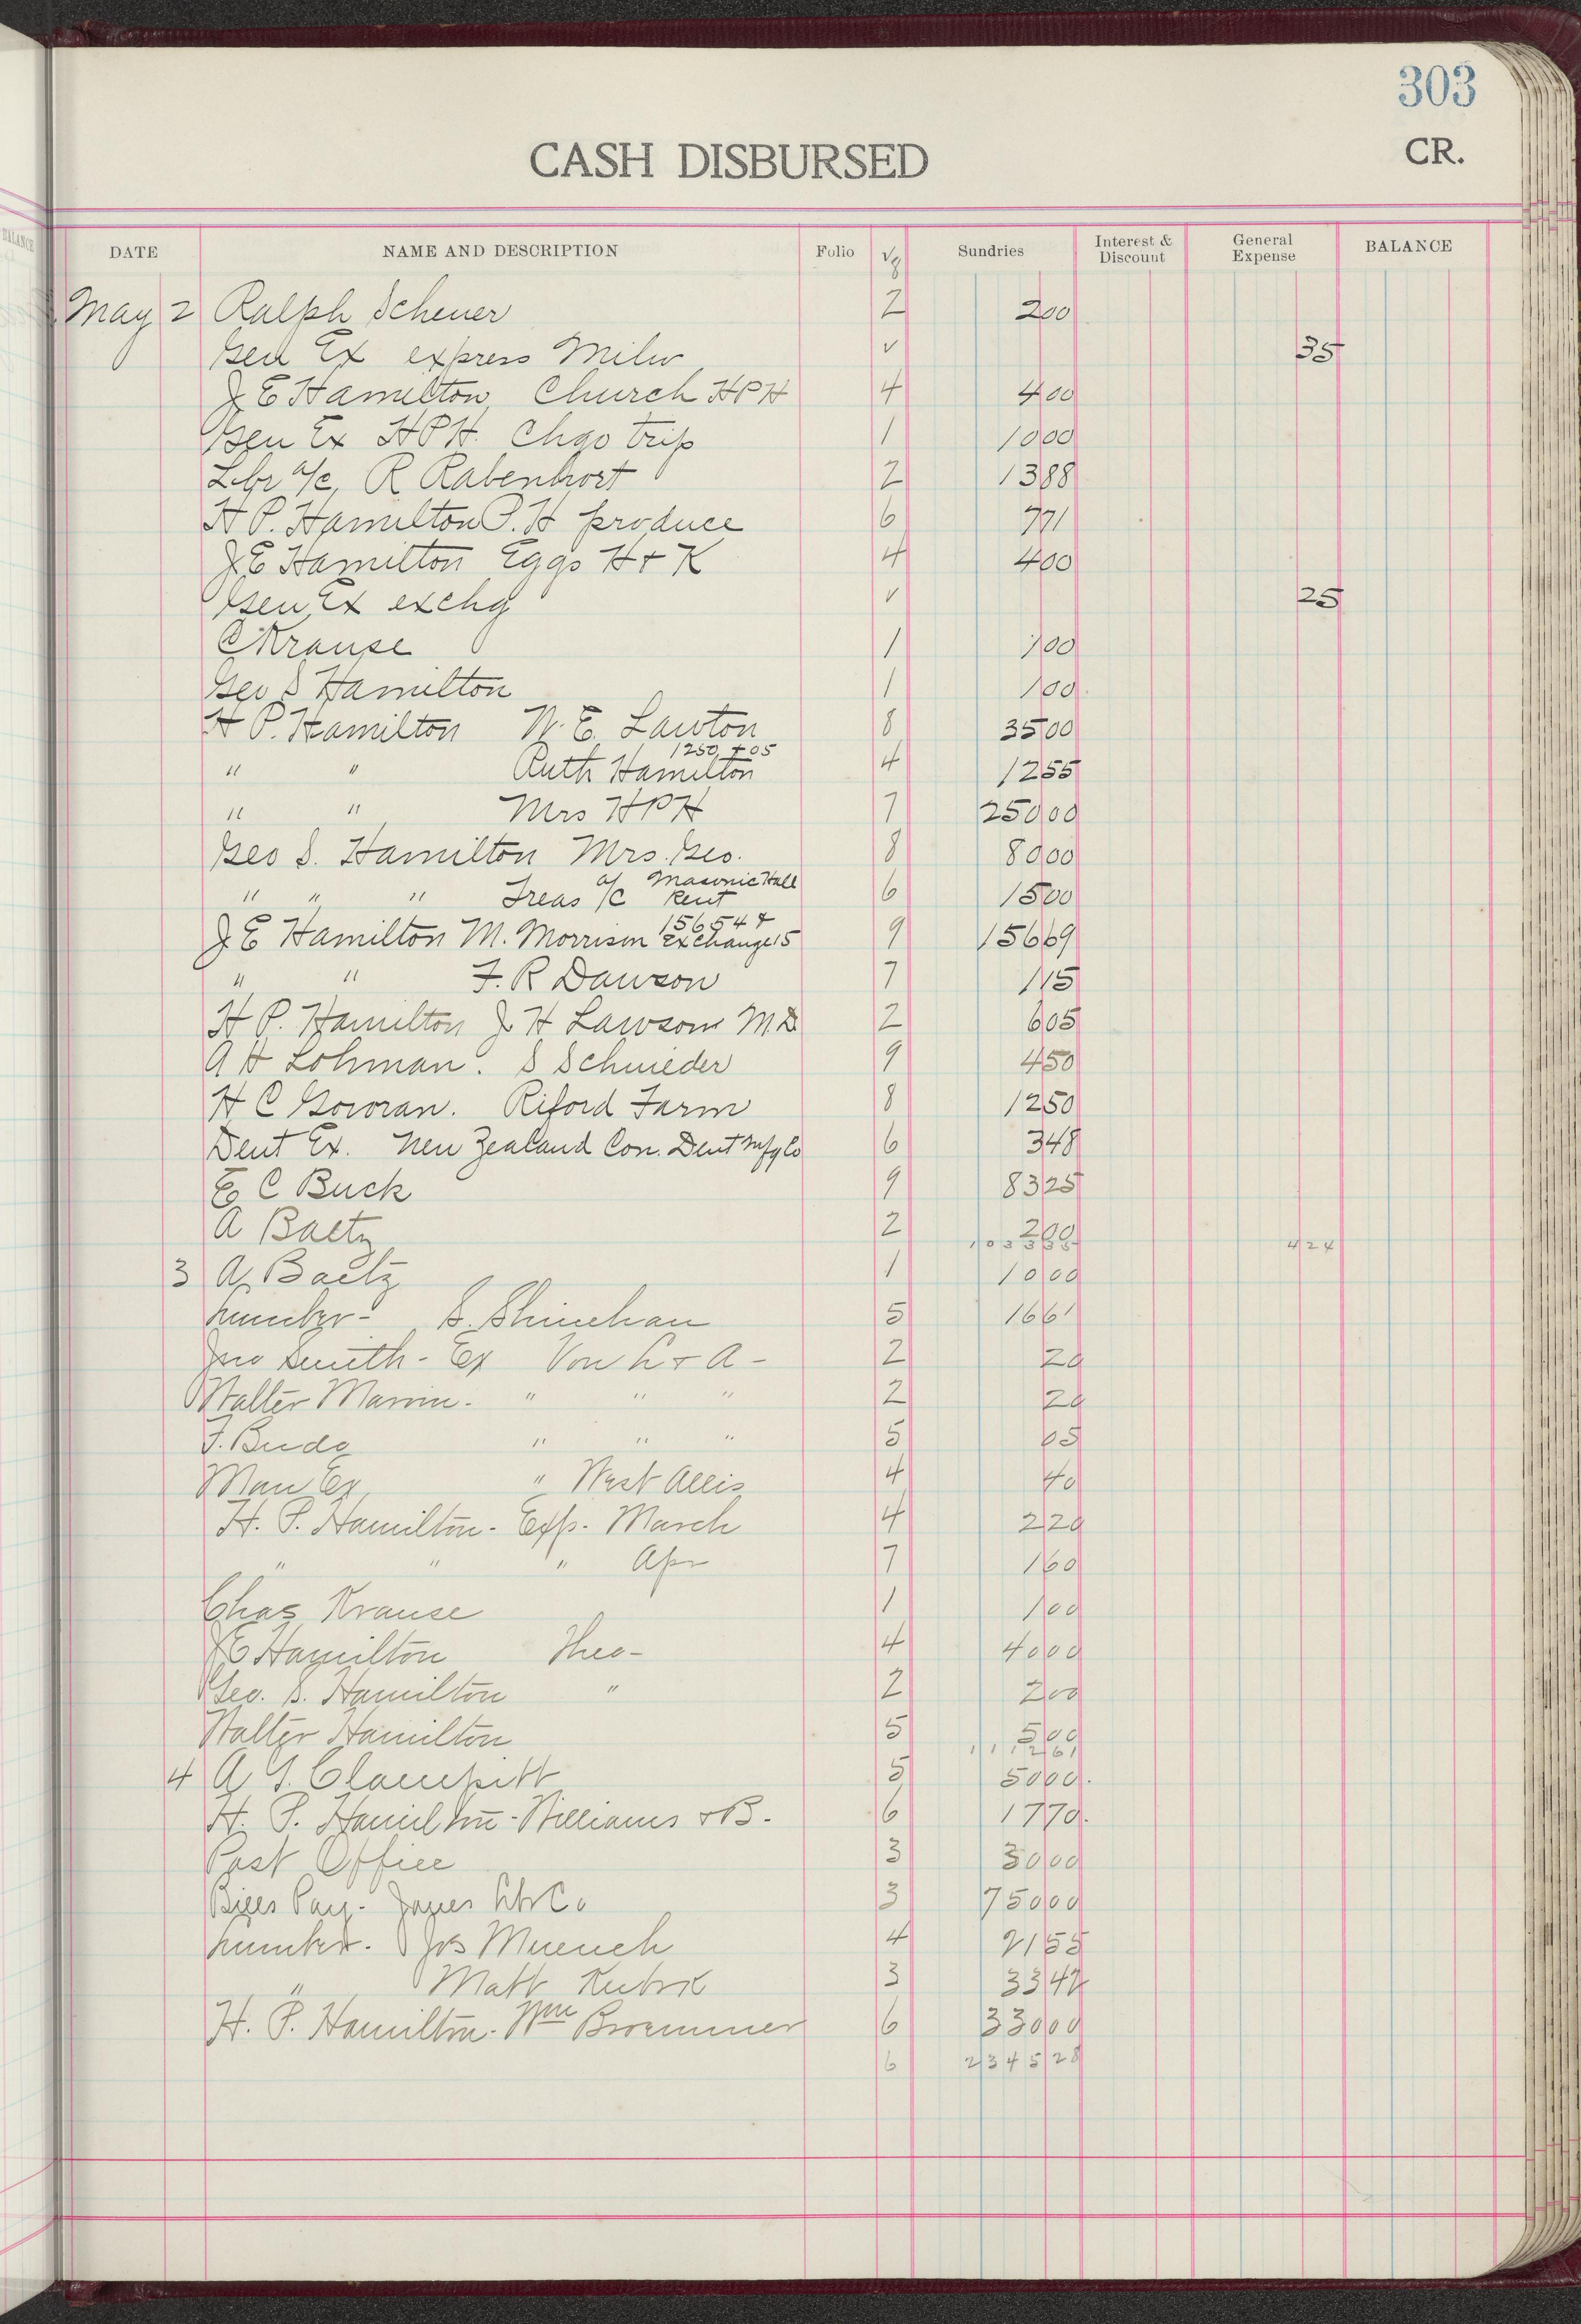 303
CASH DISBURSED
CR.
BALANCE
DATE NAME AND DESCRIPTION Folio V8 Sundries Interest & Discount General Expense BALANCE
May 2 Ralph Scheuer 2 200
Gen Ex express Milw ✓ 35
J E Hamilton Church HPH 4 400
Gen Ex HPH. Chgo trip 1 1000
Lbr a/c, R Rabenhorst 2 1388
H P. Hamilton P. H produce 6 771
J E Hamilton Eggs H + K 4 400
Gen Ex exchg ✓ 25
C Krause 1 100
Geo S Hamilton 1 100
H P. Hamilton W. E. Lawton 8 3500
" " Ruth Hamilton 1250 + 05 4 1255
" " Mrs HPH 7 25000
Geo S. Hamilton Mrs. Geo. 8 8000
" " " Treas a/c Masonic Hall Rent 6 1500
J E Hamilton M. Morrison 15654 + Exchange 15 9 15669
" " F. R Dawson 7 115
H P. Hamilton J H Lawson M D 2 605
A H Lohman. S Schnieder 9 450
H C Govoran. Riford Farm 8 1250
Dent Ex. New Zealand Con. Dent Mfg Co 6 348
E C Buck 9 8325
A Baetz 2 200
103335 424
3 A Baetz 1 1000
Lumber - S. Shinehan 5 1661
Jno Smith - Ex Von L + A - 2 20
Walter Mann. " " " 2 20
F. Budg " " " 5 05
Man Ex " West Allis 4 40
H. P. Hamilton - Exp. March 4 220
" " " Apr 7 160
Chas Krause 1 100
J E Hamilton Theo - 4 4000
Geo. S. Hamilton " 2 200
Walter Hamilton 5 500
111261
4 A J. Clampitt 5 5000.
H. P. Hamilton - Williams + B - 6 1770.
Post Office 3 3000
Bills Pay - Jones Lbr Co 3 75000
Lumber. Jos Muench 4 2155
" Matt 3 3342
H. P. Hamilton - Wm Broemmer 6 33000
6 234528